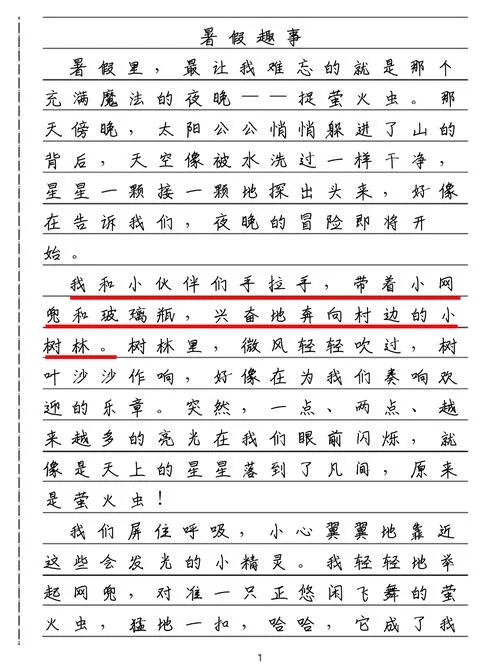 暑假趣事
暑假里，最让我难忘的就是那个
充满魔法的夜晚——捉萤火虫。那
天傍晚，太阳公公悄悄躲进了山的
背后，天空像被水洗过一样干净，
星星一颗接一颗地探出头来，好像
在告诉我们，夜晚的冒险即将开
始。
我和小伙伴们手拉手，带着小网
兜和玻璃瓶，兴奋地奔向村边的小
树林。树林里，微风轻轻吹过，树
叶沙沙作响，好像在为我们奏响欢
迎的乐章。突然，一点、两点、越
来越多的亮光在我们眼前闪烁，就
像是天上的星星落到了凡间，原来
是萤火虫！
我们屏住呼吸，小心翼翼地靠近
这些会发光的小精灵。我轻轻地举
起网兜，对准一只正悠闲飞舞的萤
火虫，猛地一扣，哈哈，它成了我
1